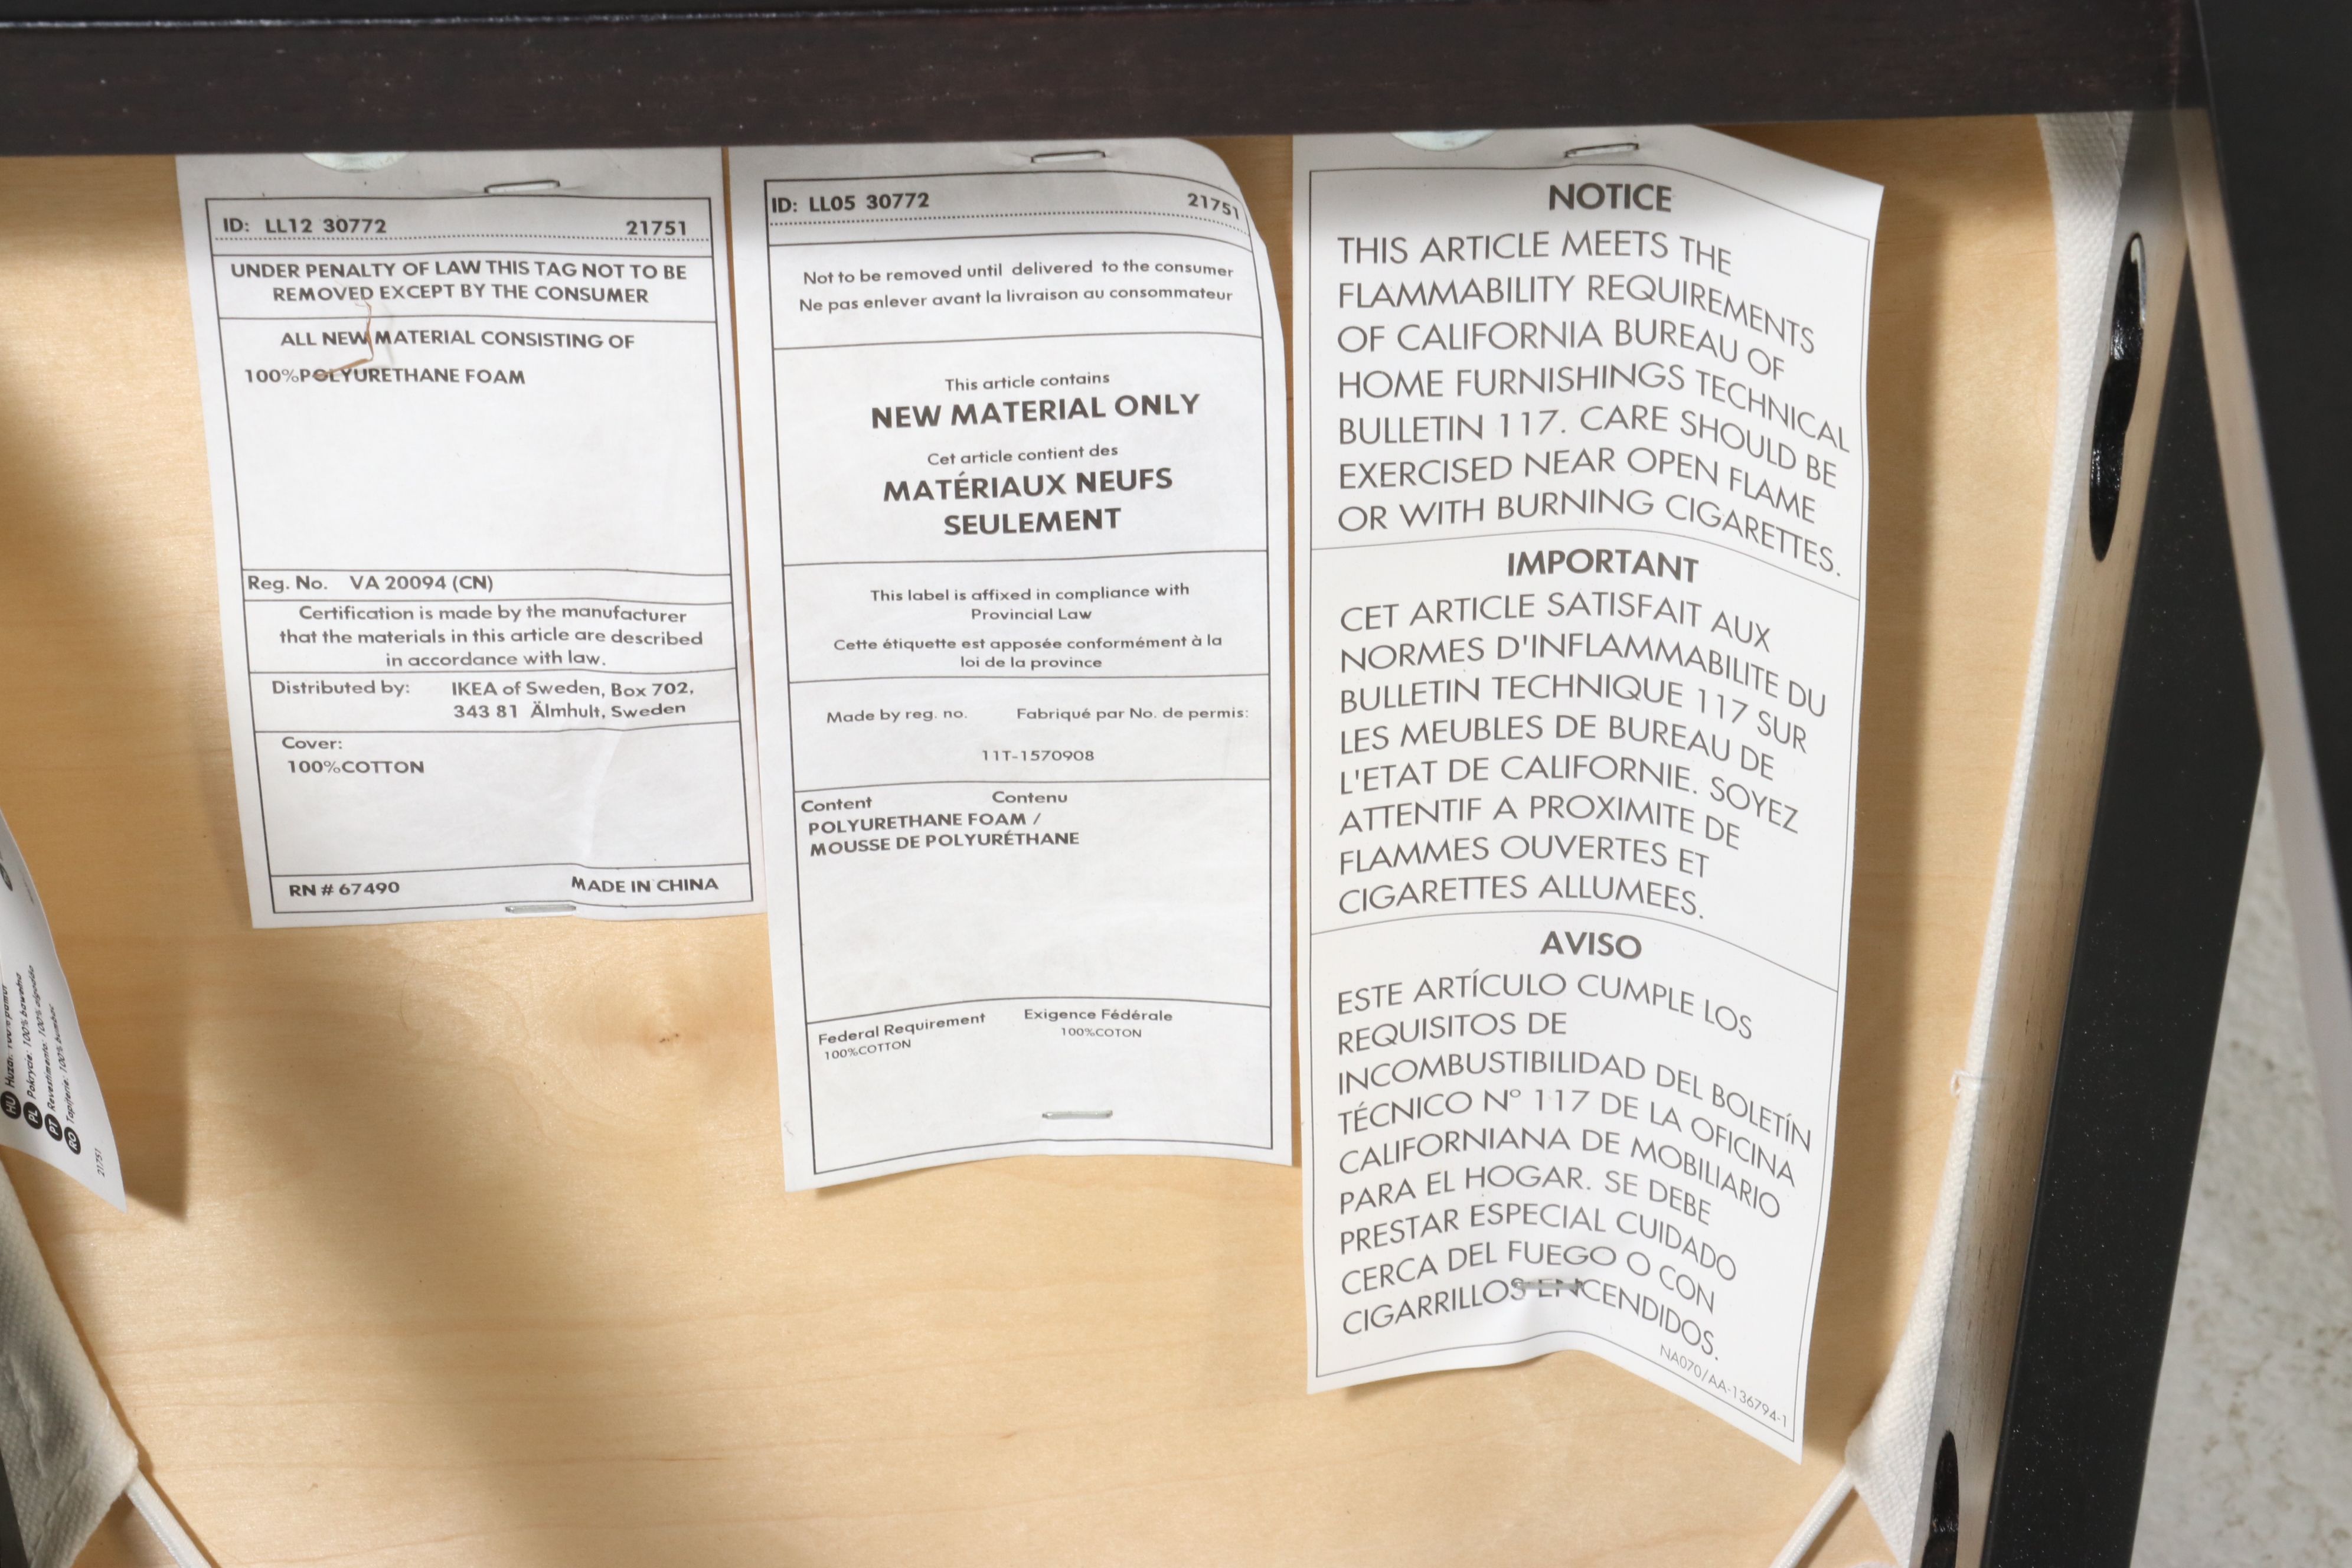 ID: LL12 30772 21751
UNDER PENALTY OF LAW THIS TAG NOT TO BE
REMOVED EXCEPT BY THE CONSUMER
ALL NEW MATERIAL CONSISTING OF
100%POLYURETHANE FOAM
Reg. No. VA 20094 (CN)
Certification is made by the manufacturer
that the materials in this article are described
in accordance with law.
Distributed by: IKEA of Sweden, Box 702,
343 81 Älmhult, Sweden
Cover:
100%COTTON
RN # 67490 MADE IN CHINA
ID: LL05 30772 21751
Not to be removed until delivered to the consumer
Ne pas enlever avant la livraison au consommateur
This article contains
NEW MATERIAL ONLY
Cet article contient des
MATÉRIAUX NEUFS
SEULEMENT
This label is affixed in compliance with
Provincial Law
Cette étiquette est apposée conformément à la
loi de la province
Made by reg. no. Fabriqué par No. de permis:
11T-1570908
Content Contenu
POLYURETHANE FOAM /
MOUSSE DE POLYURÉTHANE
Federal Requirement Exigence Fédérale
100%COTTON 100%COTON
NOTICE
THIS ARTICLE MEETS THE
FLAMMABILITY REQUIREMENTS
OF CALIFORNIA BUREAU OF
HOME FURNISHINGS TECHNICAL
BULLETIN 117. CARE SHOULD BE
EXERCISED NEAR OPEN FLAME
OR WITH BURNING CIGARETTES.
IMPORTANT
CET ARTICLE SATISFAIT AUX
NORMES D'INFLAMMABILITE DU
BULLETIN TECHNIQUE 117 SUR
LES MEUBLES DE BUREAU DE
L'ETAT DE CALIFORNIE. SOYEZ
ATTENTIF A PROXIMITE DE
FLAMMES OUVERTES ET
CIGARETTES ALLUMEES.
AVISO
ESTE ARTÍCULO CUMPLE LOS
REQUISITOS DE
INCOMBUSTIBILIDAD DEL BOLETÍN
TÉCNICO Nº 117 DE LA OFICINA
CALIFORNIANA DE MOBILIARIO
PARA EL HOGAR. SE DEBE
PRESTAR ESPECIAL CUIDADO
CERCA DEL FUEGO O CON
CIGARRILLOS ENCENDIDOS.
NA070/AA-136794-1
HU Huzat:
PL Pokrycie: 100% bawełna
PT Revestimento: 100% algodão
RO Tapiţerie: 100% bumbac
21751